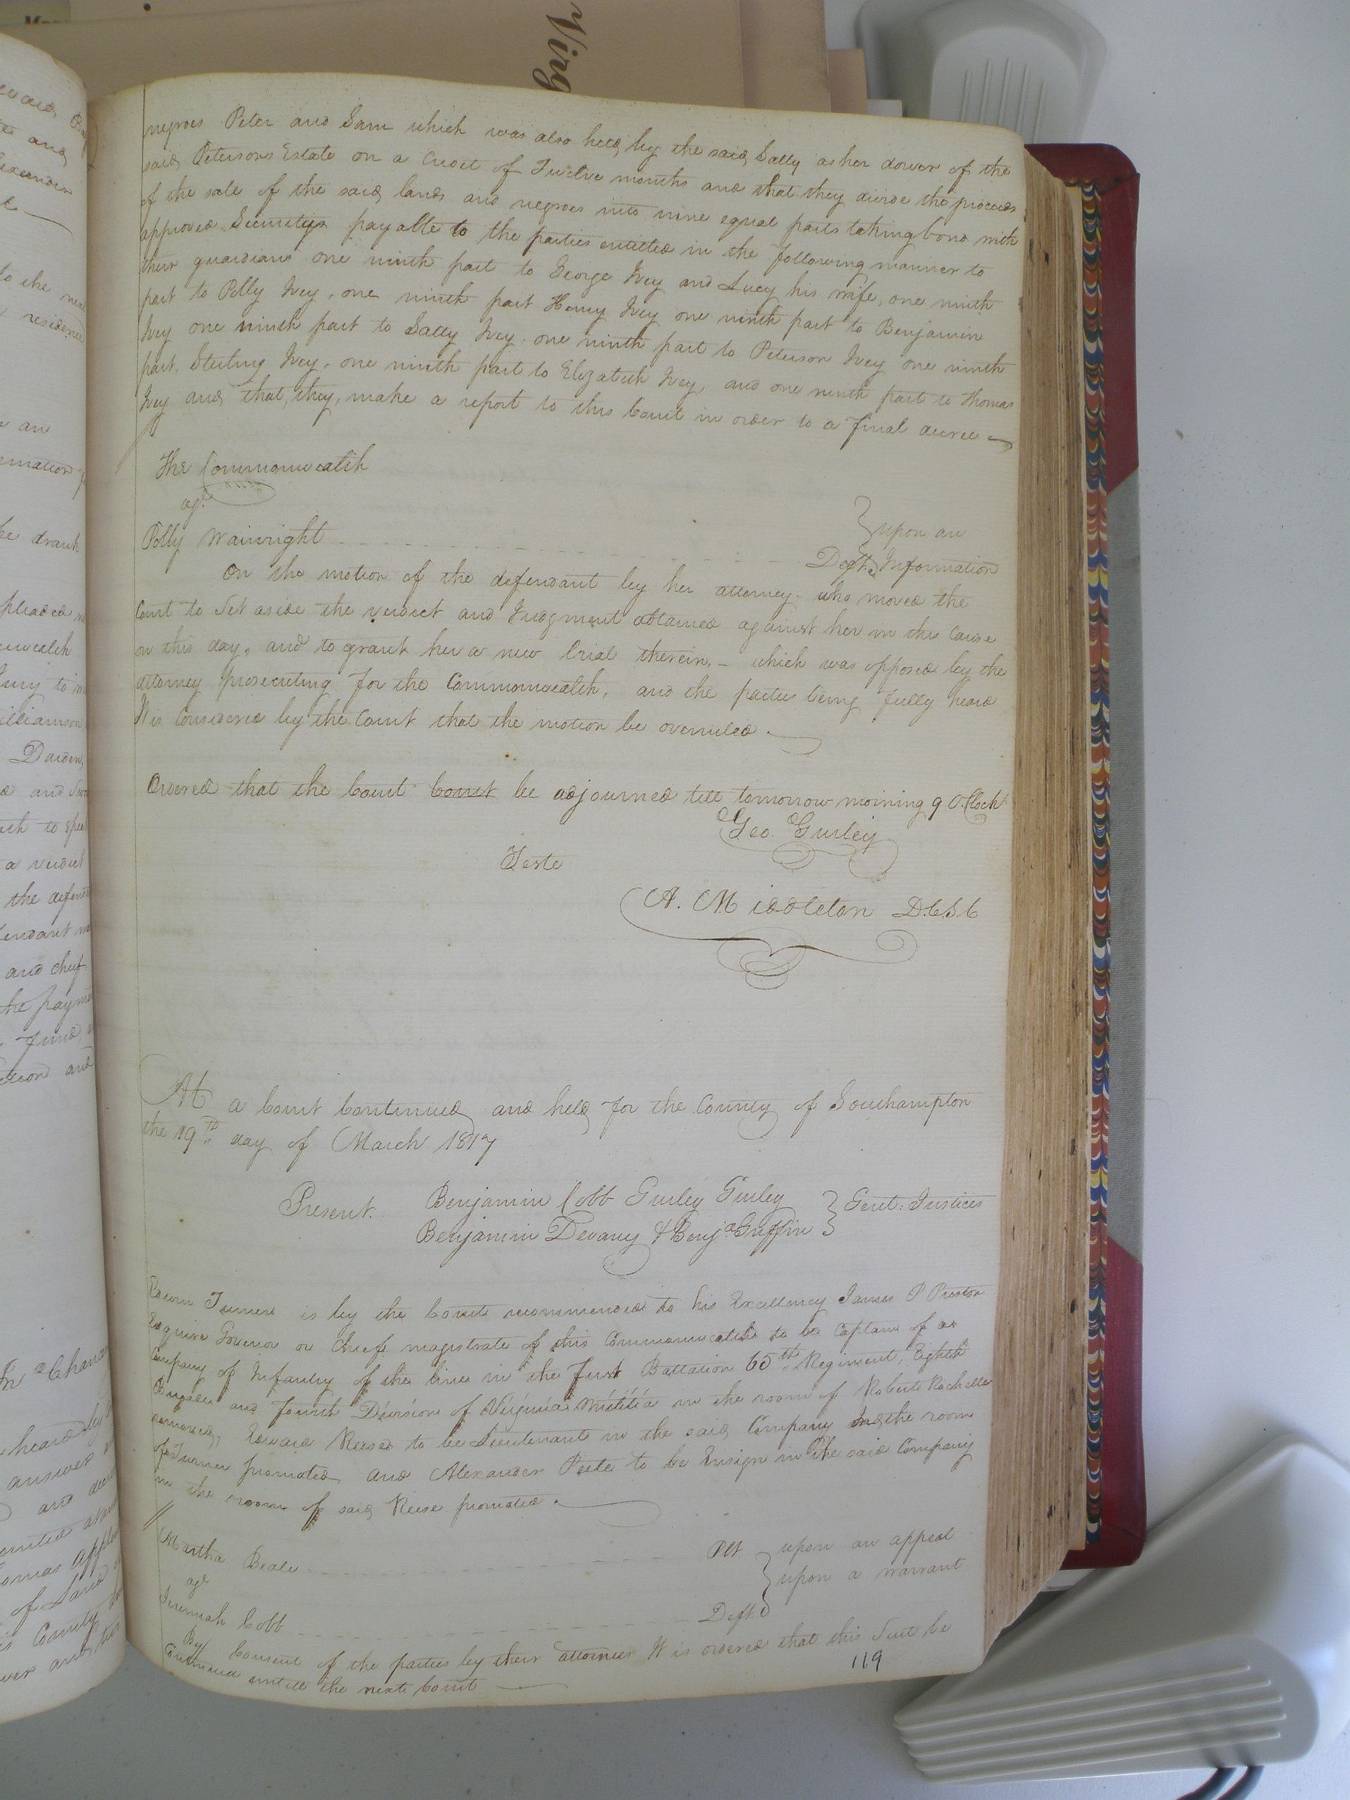 negroes Peter and Sam which was also held by the said Sally as her dower of the
said Petersons Estate on a Credit of Twelve months and that they divide the proceeds
of the sale of the said lands and negroes into nine equal parts taking bond with
approved Security payable to the parties entitled in the following manner to
their guardians one ninth part to George Ivey and Lucy his wife, one ninth
part to Polly Ivey, one ninth part Henry Ivey one ninth part to Benjamin
Ivey one ninth part to Sally Ivey. one ninth part to Peterson Ivey one ninth
part, Sterling Ivey, one ninth part to Elizabeth Ivey, and one ninth part to Thomas
Ivey and that they make a report to this Court in order to a final decree
The Commonwealth
agt
Polly Wainright
upon an
Deft. Information
On the motion of the defendant by her attorney who moved the
Court to Set aside the verdict and Judgment obtained against her in this Cause
on this day, and to grant her a new trial therein, - which was opposed by the
attorney prosecuting for the Commonwealth, and the parties being fully heard
It is Considered by the Court that the motion be overruled.
Ordered that the Court Court be adjourned till tomorrow morning 9 O.Clock
Geo. Gurley
Teste
A. Middleton D.C.S.C
At a Court Continued and held for the County of Southampton
the 19th day of March 1817
Present. Benjamin Cobb Gurley Gurley
Benjamin Devany & Benja Griffin } Gent. Justices
Turner is by the Court recommended to his Excellency James P Preston
Esquire Governor or Chief magistrate of this Commonwealth to be Captain of a
Company of Infantry of the line in the first Battalion 65th Regiment, Eighth
Brigade and fourth Division of Virginia Militia in the room of Robert Rochelle
removed, Edward Reese to be Lieutenant in the said Company in the room
of Turner promoted and Alexander Peete to be Ensign in the said Company
in the room of said Reese promoted.
Martha Beale
Plt upon an appeal
agt
upon a warrant
Jeremiah Cobb
Deft
By Consent of the parties by their attornies It is ordered that this Suit be
Continued untill the next Court
119